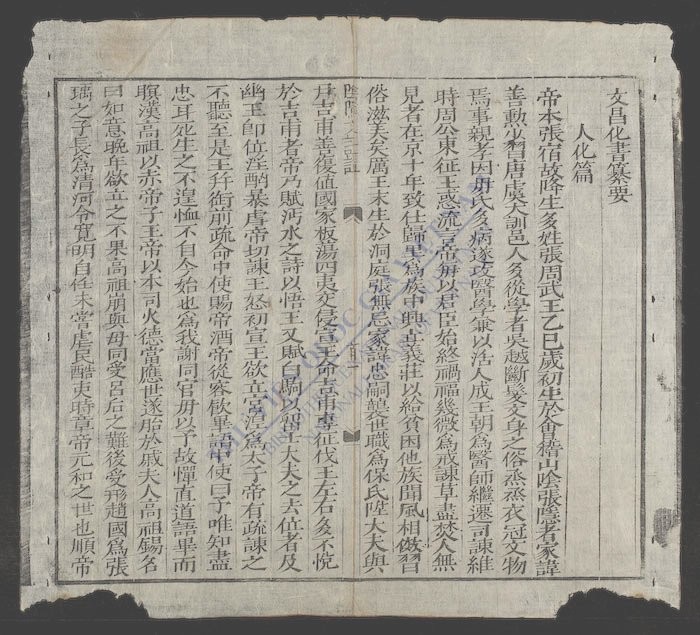 文昌化書纂要
人化篇
帝本張宿故降生多姓張周武王乙巳歲初生於會稽山陰張隱者家諱
善勳少習唐虞大訓邑人多從學者吳越斷髮文身之俗烝烝衣冠文物
焉事親孝因毋氏多病遂攻醫學兼以活人成王朝為醫師繼遷司諫維
時周公東征王惑流言帝毋以君臣始終禍福幾微為戒諫草盡焚人無
見者在京十年致仕歸里為族中興立義莊以給貧困他族聞風相傚習
俗滋美矣厲王末生於洞庭張無忌家諱忠嗣襲世職為保氏陞大夫與
尹吉甫善復值國家板蕩四夷交侵宣王命吉甫專征伐王左右多不悅
於吉甫者帝乃賦沔水之詩以悟王又賦白駒以留士大夫之去位者及
幽王即位淫酗暴虐帝切諫王怒初宣王欲立宮涅為太子帝有疏諫之
不聽至是王幷銜前疏命中使賜帝酒帝從容飲畢語中使曰予唯知盡
忠耳死生之不遑恤不自今始也為我謝同官毋以予故憚直道語畢而
瞑漢高祖以赤帝子王帝以本司火德當應世遂胎於戚夫人高祖錫名
曰如意晚年欲立之不果高祖崩與母同受呂后之難後受形趙國為張
瑀之子長為清河令寬明自任未嘗虐民酷吏時章帝元和之世也順帝